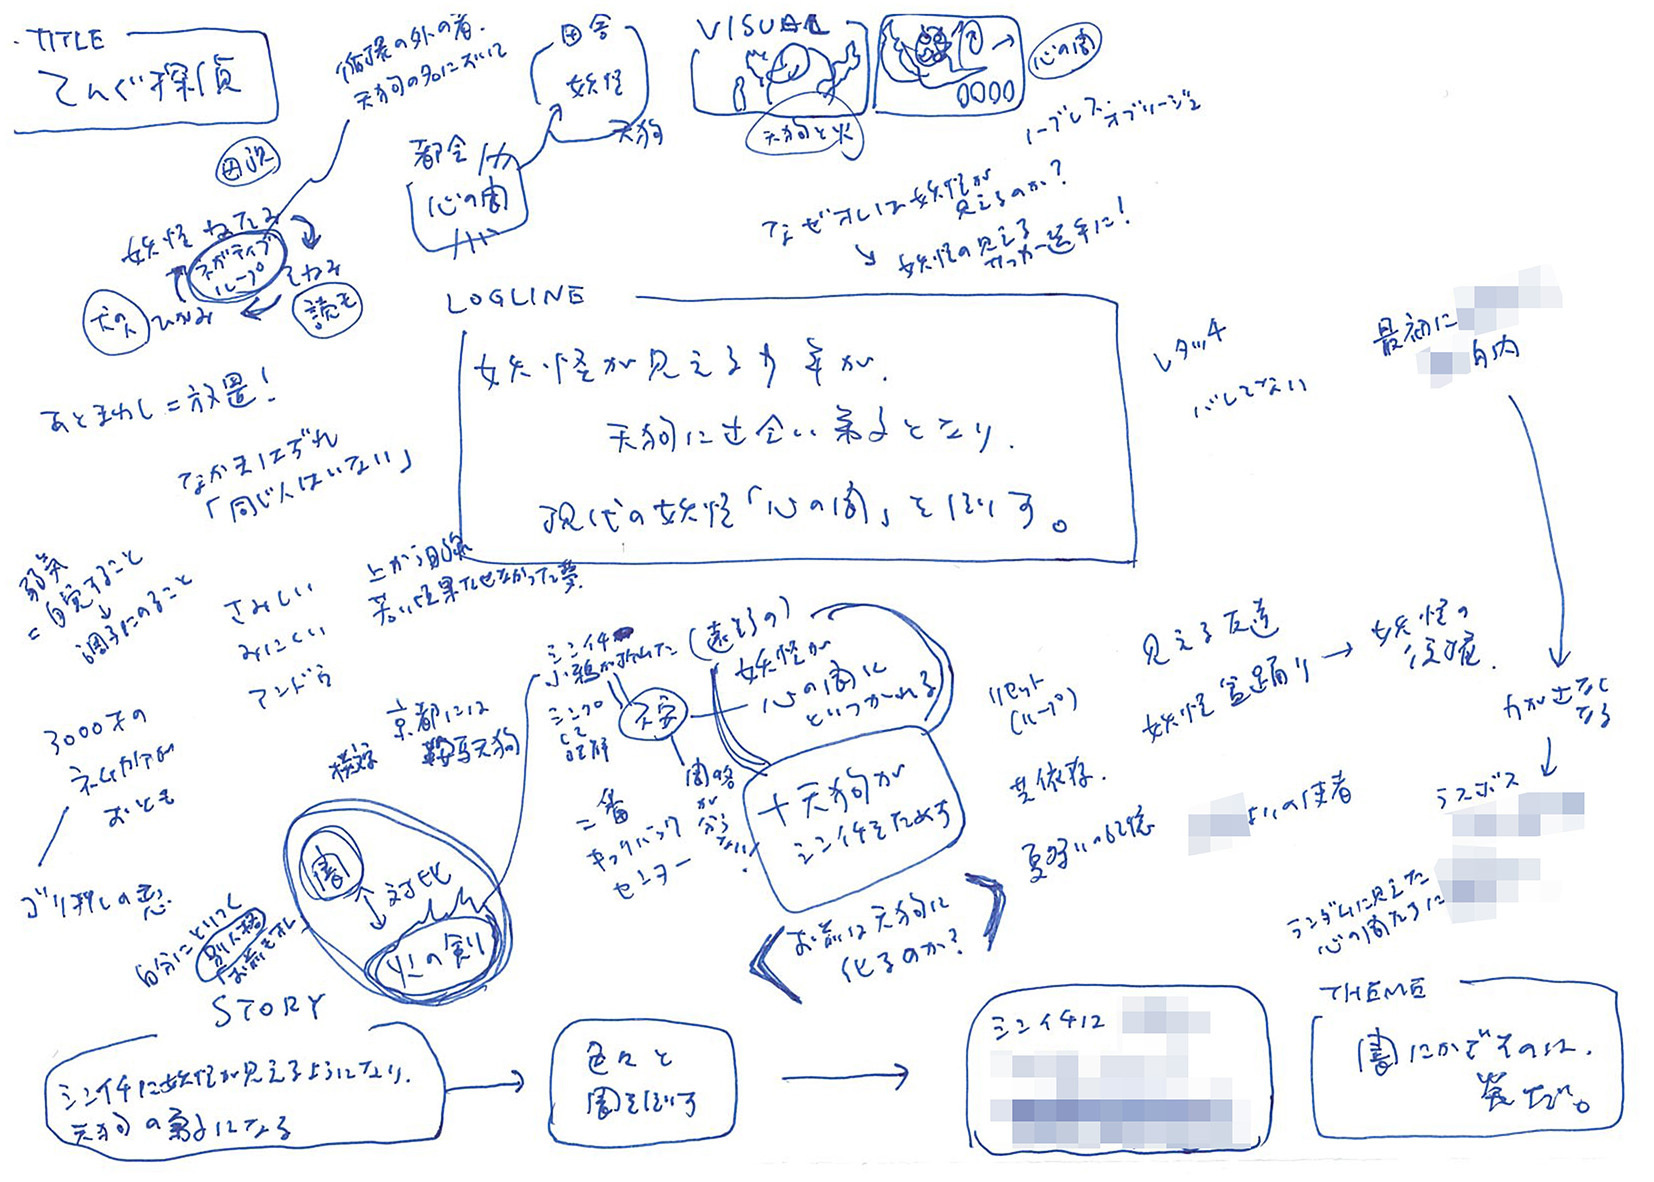 TITLE
てんぐ探偵
循環の外の者.
天狗の名において
田舎
妖怪
天狗
都会
心の闇
VISUAL
天狗と火
心の闇
ノーブレス オブリージュ
なぜオレは妖怪が
見えるのか?
妖怪の見える
サッカー選手に!
妖怪 ねたみ
ネガティブ
ループ
そねみ
ひがみ
犬の人
読モ
あとまわし=放置!
なかまはずれ
「同じ人はいない」
LOGLINE
妖怪が見える少年が、
天狗に出会い弟子となり、
現代の妖怪「心の闇」をほりす。
レタッチ
バレてない
最初に
弱気
=自覚すること
調子にのること
さみしい
みにくい
アンドゥ
上から目線
若い頃果たせなかった夢
3000才の
ネムカケが
おとも
ゴリ押しの悪
京都には
鞍馬天狗
横浜
シンイチ
小鴉が折れた
不安
(遠野の)
妖怪が
心の闇に
とりつかれる
十天狗が
シンイチをためす
お前は天狗に
化るのか?
二番
キックバック
センター
リセット
(ループ)
共依存.
見える友達
妖怪 盆踊り
妖怪の
力が出なく
なる
ラスボス
の使者
ランダムに見えた
心の闇たちに
闇
対比
火の剣
自分にといつく
別人格
お前もオレ
STORY
シンイチに妖怪が見えるようになり、
天狗の弟子になる
色々と
闇をほりす
シンイチは
THEME
闇にかざすのは、
炎だ。